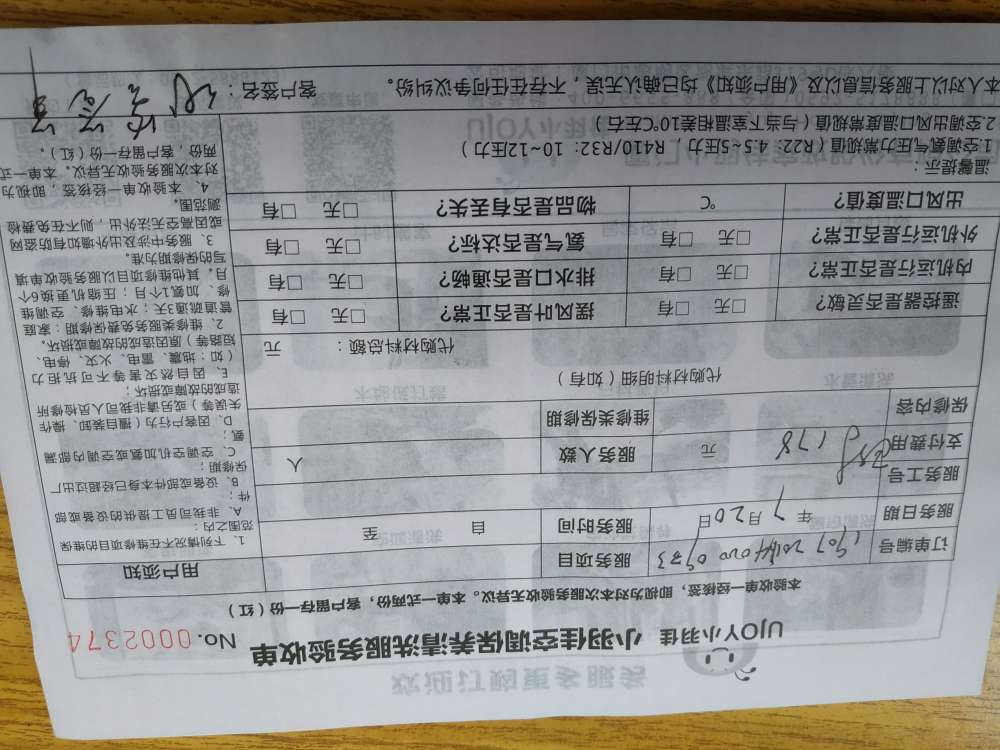 UJOY小羽佳 小羽佳空调保养清洗服务验收单 No. 0002374
本验收单一经接签，即视为对本次服务验收无异议。本单一式两份，客户留存一份（红）
订单编号 服务项目
服务日期 年 7 月 20 日 服务时间 自 至
服务工号
支付费用 178 元 服务人数 人
保修内容 维修类保修期
代购材料明细（如有）
代购材料总额： 元
遥控器是否灵敏? □无 □有 摆风叶是否正常? □无 □有
内机运行是否正常? □无 □有 排水口是否通畅? □无 □有
外机运行是否正常? □无 □有 氨气是否达标? □无 □有
出风口温度值? ℃ 物品是否有丢失? □无 □有
用户须知
1、下列情况不在维修项目的维保
范围之内：
A、非我司员工提供的设备或部
件；
B、设备或部件本身已经超过出厂
保修期；
C、空调空机加氨或空调内部漏
氨；
D、因客户行为（擅自装卸、操作
失误等）或另请非我司人员检修所
造成的故障或损坏；
E、因自然灾害等不可抗拒力
（如：地震、雷电、火灾、停电、
短路等）原因造成的故障或损坏。
2、维修类服务免费保修期：家庭
管道疏通3天；水电维修、空调维
修、加氨1个月；压缩机更换6个
月。其他维修项目以服务验收单填
写的保修期为准。
3、服务中涉及出外墙如有防盗网
或因高空无法外出，则不在免费检
测范围。
4、本验收单一经接签，即视为
对本次服务验收无异议。本单一式
两份，客户留存一份（红）。
温馨提示：
1.空调氨气压力常规值（R22：4.5~5压力，R410/R32：10~12压力）
2.空调出风口温度常规值（与当下室温相差10℃左右）
本人对以上服务信息以及《用户须知》均已确认无误，不存在任何争议纠纷。 客户签名：
欢迎订购更多服务